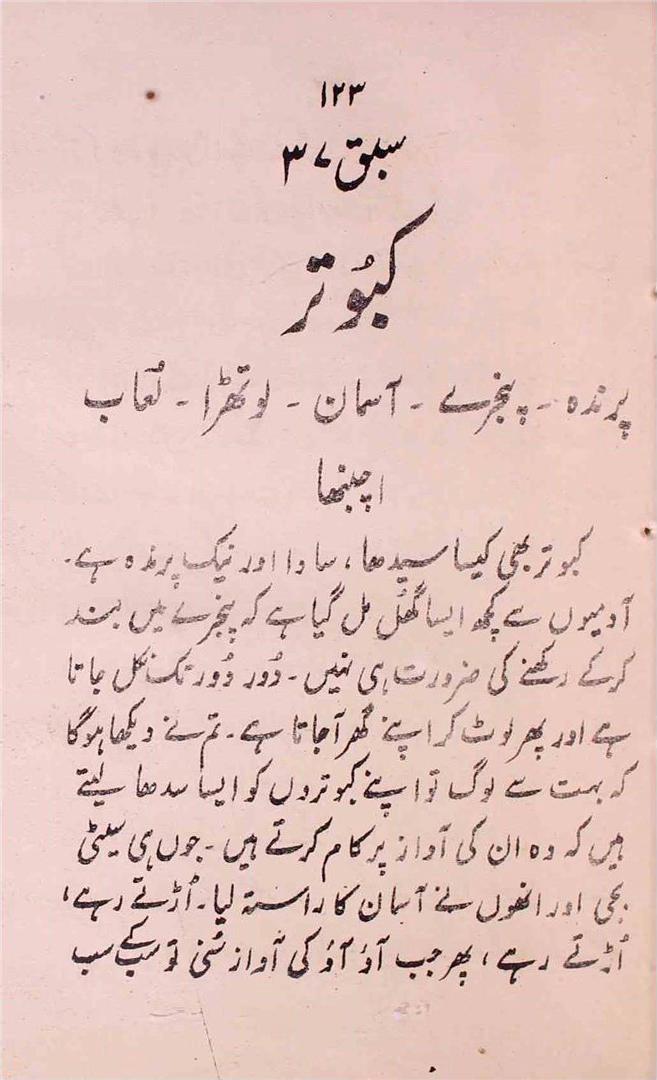 ۱۲۳
سبق ۳۷
کبُوتر
پرندہ - پنجرے - آسمان - لوتھڑا - لُعاب
اچنبھا
کبوتر بھی کیسا سیدھا، سادا اور نیک پرندہ ہے۔
آدمیوں سے کچھ ایسا گھُل مل گیا ہے کہ پنجرے میں بند
کرکے رکھنے کی ضرورت ہی نہیں۔ دُور دُور تک نکل جاتا
ہے اور پھر لوٹ کر اپنے گھر آجاتا ہے۔ تم نے دیکھا ہوگا
کہ بہت سے لوگ تو اپنے کبوتروں کو ایسا سدھا لیتے
ہیں کہ وہ ان کی آواز پر کام کرتے ہیں۔ جوں ہی سیٹی
بجی اور انھوں نے آسمان کا راستہ لیا۔ اُڑتے رہے،
اُڑتے رہے، پھر جب آؤ آؤ کی آواز سُنی تو سب کے سب